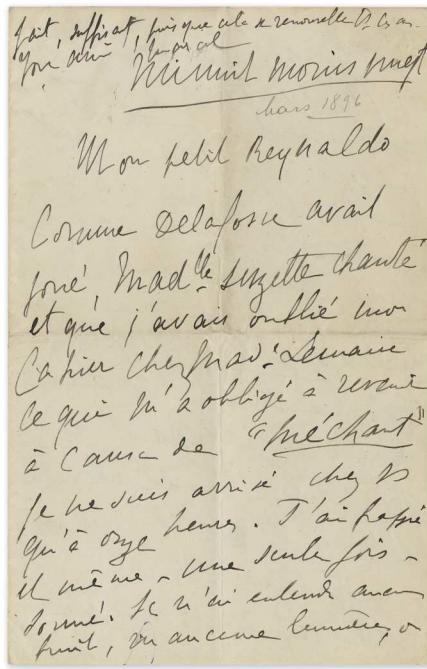 fait, suffisant, puisque cela se renouvelle
Votre ami Marcel
Minuit moins vingt
mars 1896
Mon petit Reynaldo
Comme Delafosse avait
joué, Mad^lle Suzette chanté
et que j'avais oublié mon
Cahier chez Mad^e Lemaire
ce qui m'a obligé à revenir
à cause de "méchant"
je ne suis arrivé chez vs
qu'à onze heures. J'ai frappé
et même – une seule fois –
sonné. Je n'ai entendu aucun
bruit, vu aucune lumière,